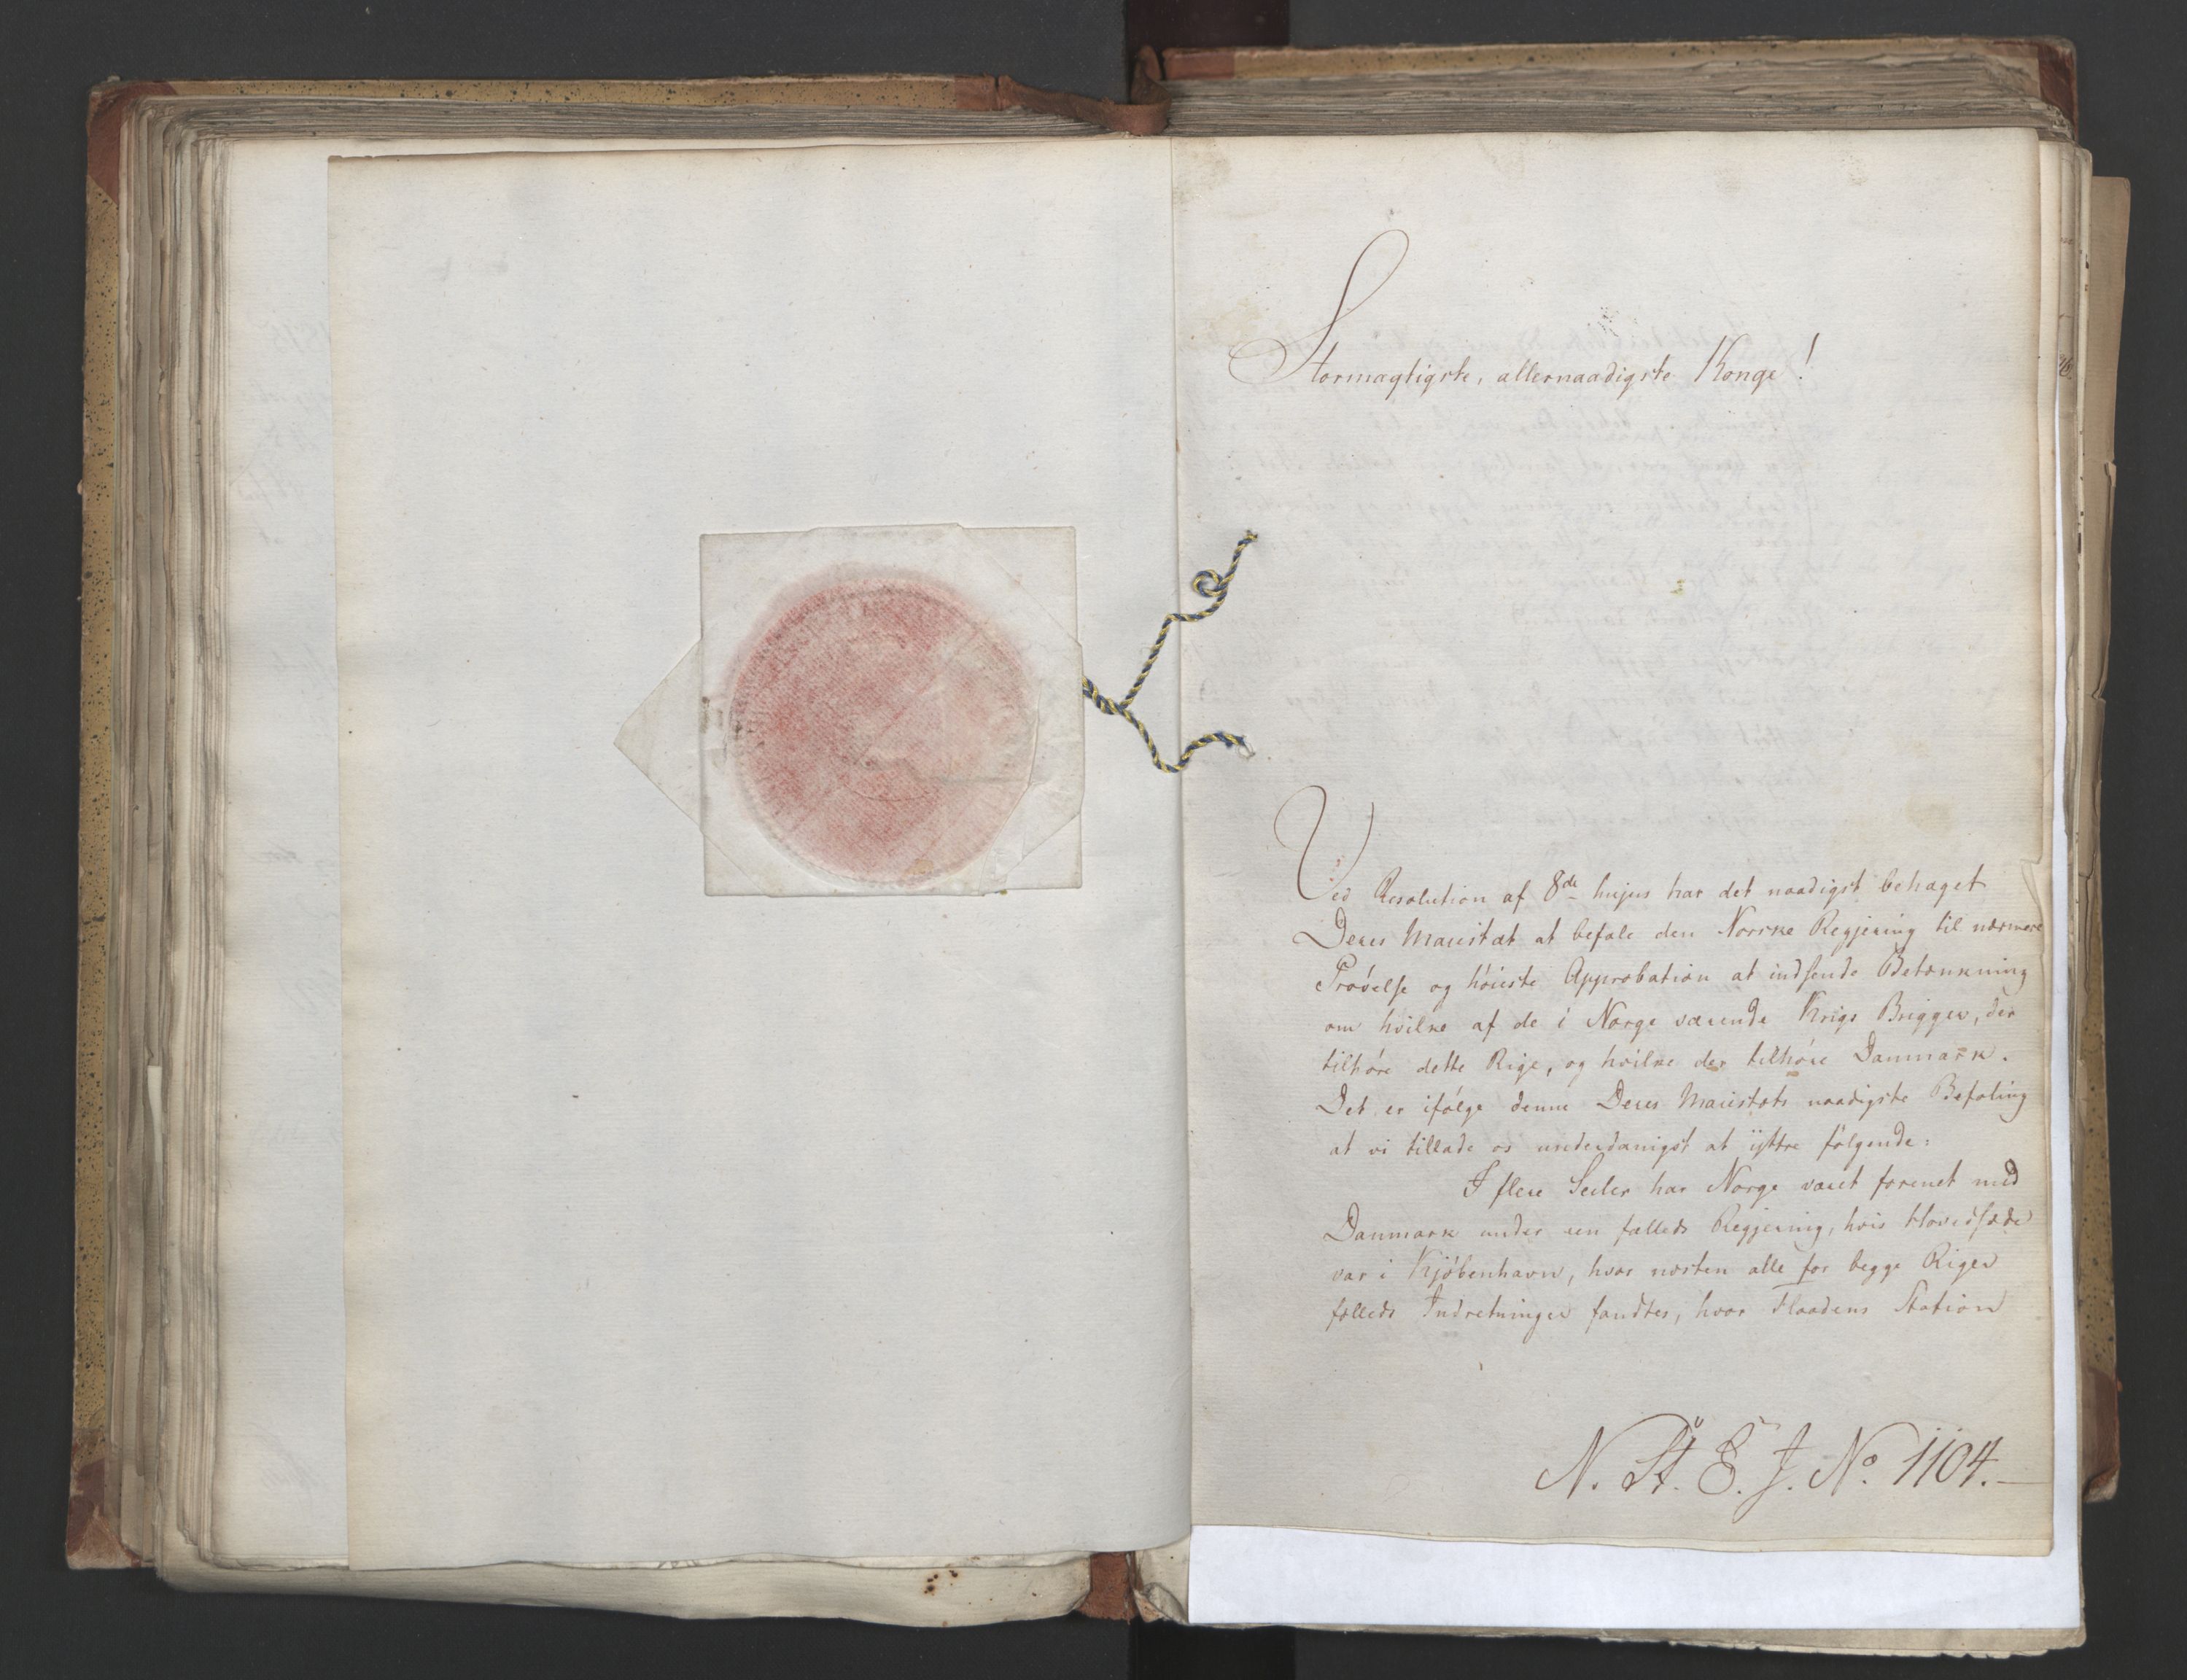 Stormægtigste, allernaadigste Konge!
Ved Resolution af 8de hujus har det naadigst behaget
Deres Maiestæt at befale den Norske Regjering til nærmere
Prövelse og höieste Approbation at indsende Betænkning
om hvilke af de i Norge værende Krigs Brigger, der
tilhöre dette Rige, og hvilke der tilhöre Danmark.
Det er ifölge denne Deres Maiestæts naadigste Befaling
at vi tillade os underdanigst at ÿttre fölgende:
I flere Secler har Norge været forenet med
Danmark under een fælleds Regjering, hvis Hovedsæde
var i Kjöbenhavn, hvor næsten alle for begge Riger
fælleds Indretninger fandtes, hvor Flaadens Station
N. St. E. J. No. 1104.